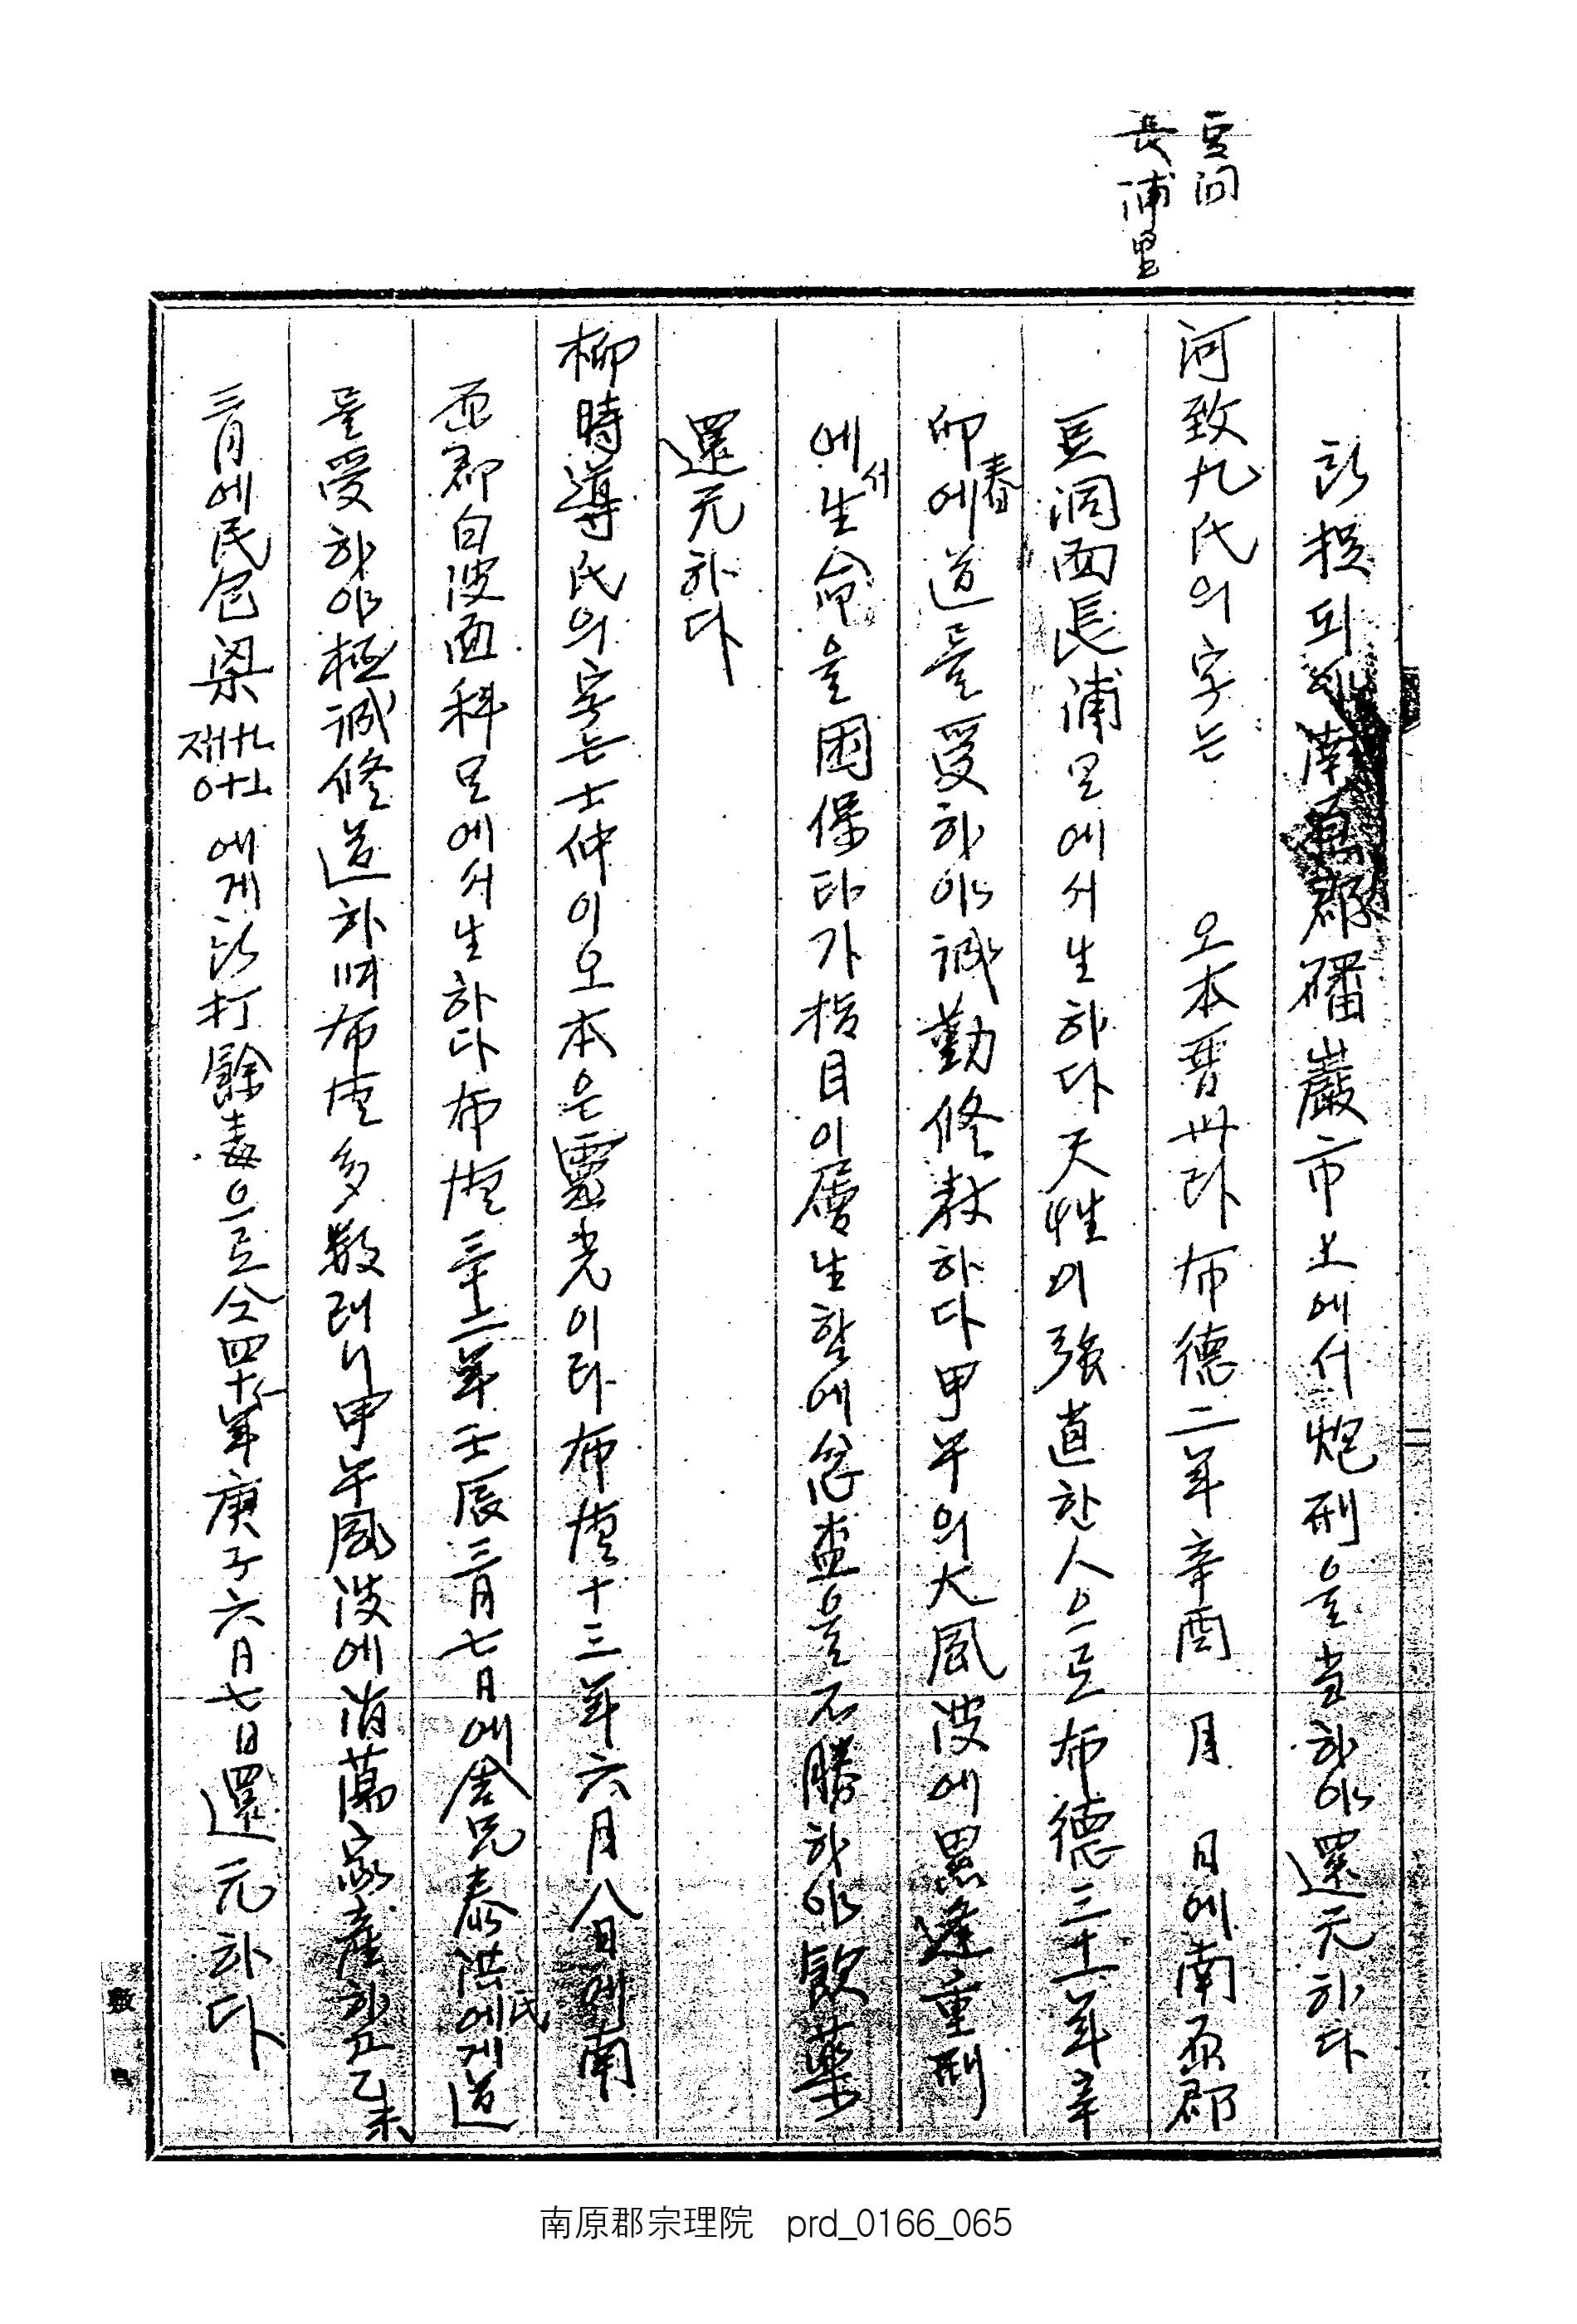 豆洞
長浦里
被捉되야南原郡磻巖市上에서炮刑을當하야還元하다
河致九氏의字는 오本晋州라布德二年辛酉 月 日에南原郡
豆洞面長浦里에서生하다天性이强直한人으로布德三十二年辛
卯春에道를受하야誠勤修教하다甲午의大風波에累逢重刑
에서生命을困保타가指目이層生할에忿恚을不勝하야飮藥
還元하다
柳時導氏의字는士仲이오本은靈光이라布德十三年六月八日에南
原郡白波面科里에서生하다布德三十三年壬辰三月七日에舍兄泰洪氏에게道
를受하야極誠修道하며布德多數러니甲午風波에消蕩家産하고乙未
三月에民包梁에게被打餘毒으로仝四十一年庚子六月七日還元하다
南原郡宗理院 prd_0166_065